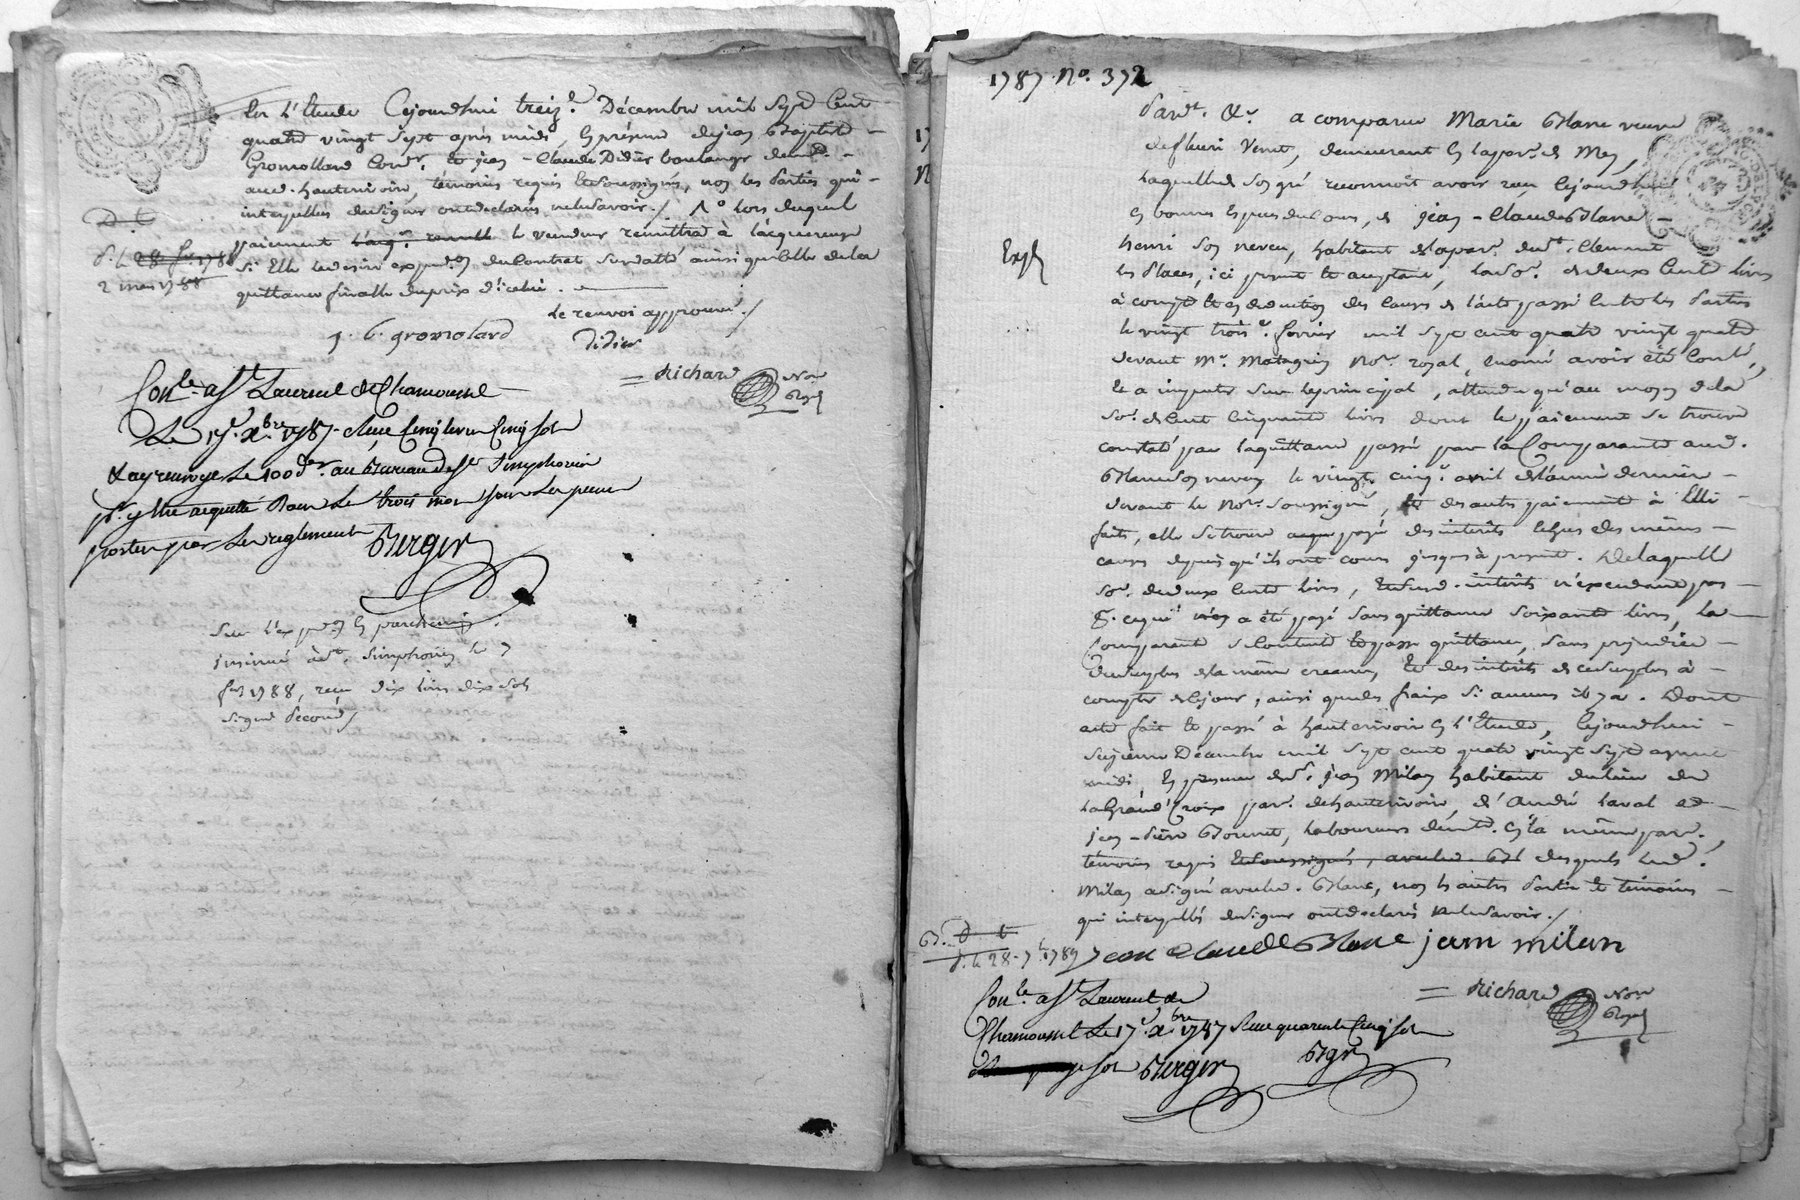 En l'Etude Cejourdhui treize Décembre mil sept cent
quatre vingt sept après midi, En présence de jean Baptiste
Gromollard Cord.r et jean-Claude Didier boulanger demt.
aud. hauterivoire, témoins requis et soussignés, non les Parties qui
interpellées de signer ont déclarés ne le savoir / 1° lors duquel
paiement le vendeur remettra à l'acquereur
Si Elle le desire expedon du Contrat surdatté ainsi que celle de la
quittance finalle du prix d'icelui.
2 mars 1788
le renvoi approuvé /
j. b. gromolard
Didier
Richard Not.re Royal
Con.le a St Laurent de Chamousset
Le 17e Xbre 1787 Reçu Cinq livres Cinq sols
& ay renvoyé le 100 d.er au Bureau de St Simphorien
pr. y être acquitté Dans Le trois mois sous Les peines
portées par Les reglements Berger
Sur l'expon En parchemin
insinué à St. Simphorien le 7
fer 1788, reçu dix livres dix sols
signé Second /
1787 No. 372
Pardt. &c. a comparu Marie Blanc veuve
de fleuri Venet, demeurant En la par. de Mey,
Laquelle de son gré reconnoit avoir reçu Cejourdhui
En bonnes Especes du Cours, de jean-Claude Blanc
Expé
henri son neveu, habitant de la par. dudt. Clement
les Places, ici present et acceptant, la so. de deux Cents livres
à compte et en deduction des Causes de l'acte passé Entre les Parties
le vingt trois.e fevrier mil sept cent quatre vingt quatre
devant Me. Matagrin Nore. royal, Enoncé avoir été Conlé,
et a imputer sur le principal, attendu qu'au moyen de la
so. de Cent Cinquante livres dont le paiement se trouve
constaté par la quittance passée par la Comparante aud.
Blanc son neveu le vingt cinq.e avril de l'année derniere
devant le Nore. soussigné, et des autres paiements à Elle
faits, elle se trouve acquittée des interets Echus des mêmes
causes depuis qu'ils ont cours jusques à present. De laquelle
so. de deux Cents livres, Ensemble interets n'excedant pas
a été payé sans quittance soixante livres, la
Comparante se Contente Et passe quittance, sans prejudice
du surplus de la même creance, Et des interets de ce surplus à
compter de Cejour, ainsi que des fraix si aucuns il y a. Dont
acte fait et passé à hauterivoire En l'Etude, Cejourdhui
seizieme Décembre mil sept cent quatre vingt sept après
midi En presence de sr. jean Milan habitant du lieu de
la Grand'Croix par. de hauterivoire, d'André Laval et
jean-Pierre Bonnet, laboureurs demts. En la même par.,
témoins requis Et soussignés, avec led. Bl desquels led.
Milan a signé avec led. Blanc, non les autres Partie et témoins
qui interpellés de signer ont déclarés ne le savoir /
D. le 28 7bre 1789
Jean Claude Blanc jean milan
Richard Nore Royal
Con.le a St Laurent de
Chamousset Le 17e Xbre 1787 Reçu quarante Cinq sols
sols Berger
Bgr